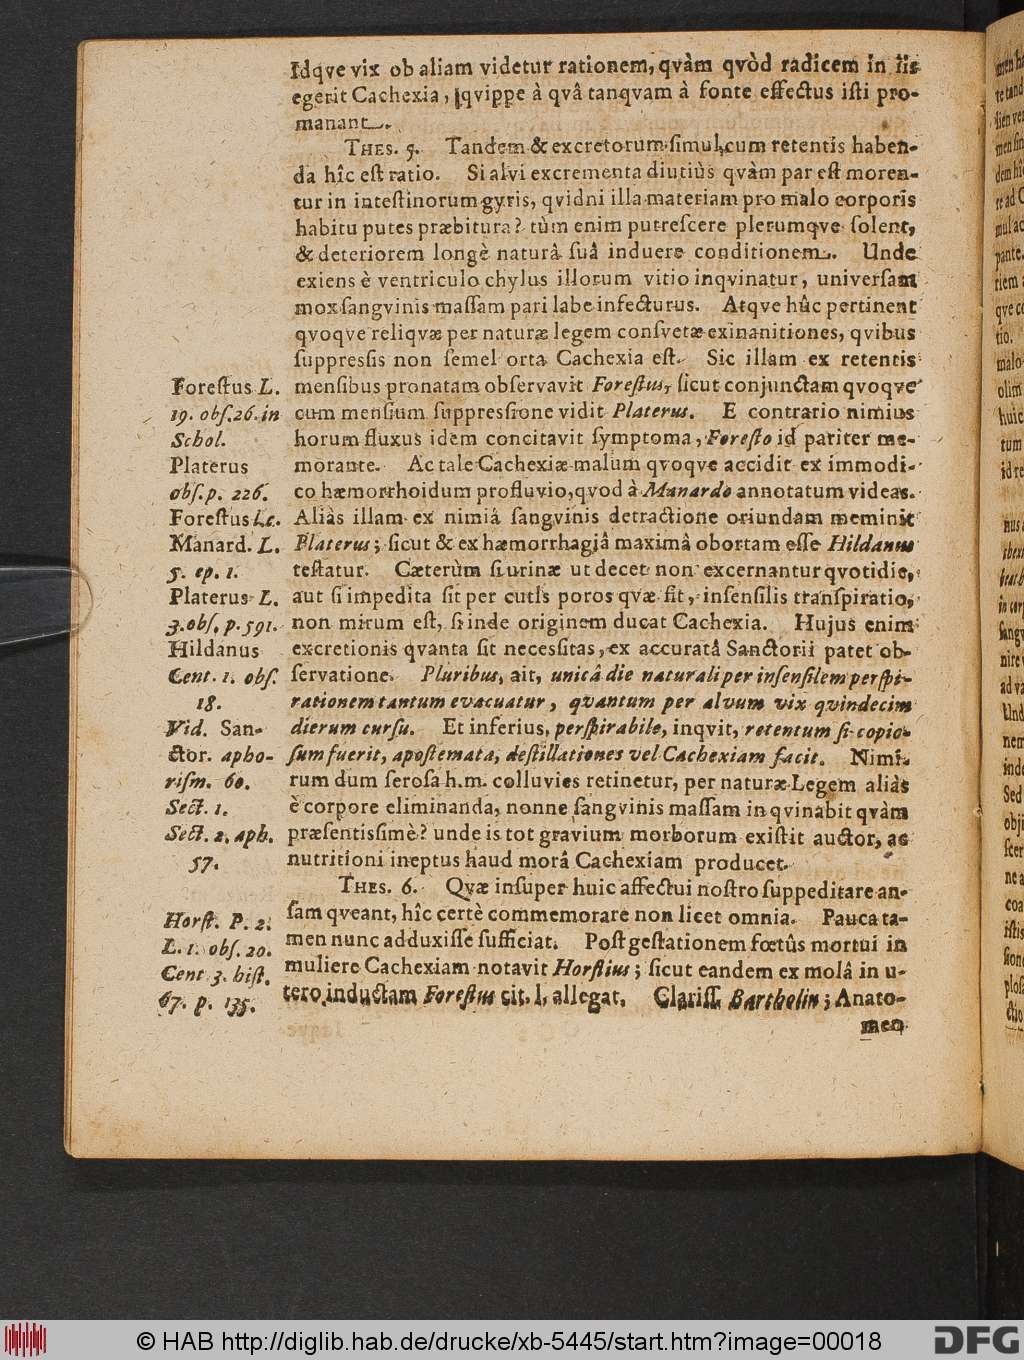 Idqve vix ob aliam videtur rationem, qvàm qvòd radicem in iis
egerit Cachexia, qvippe à qvâ tanqvam à fonte effectus isti pro-
manant.
THES. 5. Tandem & excretorum simul cum retentis haben-
da hîc est ratio. Si alvi excrementa diutiùs qvàm par est moren-
tur in intestinorum gyris, qvidni illa materiam pro malo corporis
habitu putes præbitura? tùm enim putrescere plerumqve solent,
& deteriorem longè naturâ suâ induere conditionem. Unde
exiens è ventriculo chylus illorum vitio inqvinatur, universam
mox sangvinis massam pari labe infecturus. Atqve hûc pertinent
qvoqve reliqvæ per naturæ legem consvetæ exinanitiones, qvibus
suppressis non semel orta Cachexia est. Sic illam ex retentis
mensibus pronatam observavit Forestus, sicut conjunctam qvoqve
cum mensium suppressione vidit Platerus. E contrario nimius
horum fluxus idem concitavit symptoma, Foresto id pariter me-
morante. Ac tale Cachexiæ malum qvoqve accidit ex immodi-
co hæmorrhoidum profluvio, qvod à Manardo annotatum videas.
Aliàs illam ex nimiâ sangvinis detractione oriundam meminit
Platerus; sicut & ex hæmorrhagiâ maximâ obortam esse Hildanus
testatur. Cæterùm si urinæ ut decet non excernantur qvotidie,
aut si impedita sit per cutis poros qvæ fit, insensilis transpiratio,
non mirum est, si inde originem ducat Cachexia. Hujus enim
excretionis qvanta sit necessitas, ex accuratâ Sanctorii patet ob-
servatione. Pluribus, ait, unicâ die naturali per insensilem perspi-
rationem tantum evacuatur, qvantum per alvum vix qvindecim
dierum cursu. Et inferius, perspirabile, inqvit, retentum si copio-
sum fuerit, apostemata, destillationes vel Cachexiam facit. Nimi-
rum dum serosa h.m. colluvies retinetur, per naturæ Legem aliàs
è corpore eliminanda, nonne sangvinis massam inqvinabit qvàm
præsentissimè? unde is tot gravium morborum existit auctor, ac
nutritioni ineptus haud morâ Cachexiam producet.
THES. 6. Qvæ insuper huic affectui nostro suppeditare an-
sam qveant, hîc certè commemorare non licet omnia. Pauca ta-
men nunc adduxisse sufficiat. Post gestationem fœtûs mortui in
muliere Cachexiam notavit Horstius; sicut eandem ex molâ in u-
tero inductam Forestus cit. l. allegat. Clariss. Bartholin; Anato-
men
Forestus L.
19. obs. 26. in
Schol.
Platerus
obs. p. 226.
Forestus l.c.
Manard. L.
5. ep. 1.
Platerus L.
3. obs. p. 591.
Hildanus
Cent. 1. obs.
18.
Vid. San-
ctor. apho-
rism. 60.
Sect. 1.
Sect. 2. aph.
57.
Horst. P. 2.
L. 1. obs. 20.
Cent 3. hist.
67. p. 135.
© HAB http://diglib.hab.de/drucke/xb-5445/start.htm?image=00018
DFG